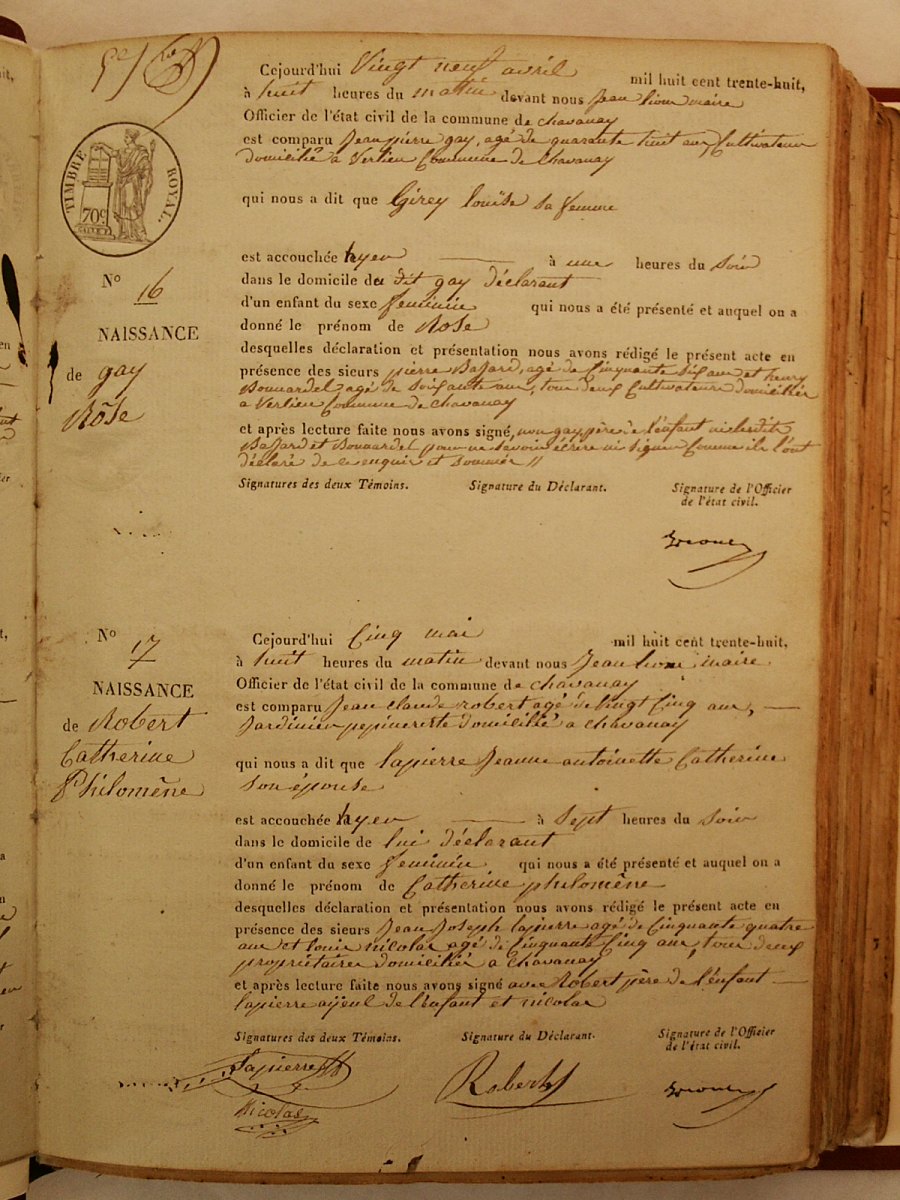 Cejourd'hui Vingt neuf avril mil huit cent trente-huit,
à huit heures du matin devant nous Jean lioux maire
Officier de l'état civil de la commune de chavanay
est comparu Jean pierre gay, agé de quarante huit ans, Cultivateur
domicilié à Verlieu Commune de Chavanay
qui nous a dit que Girey louïse sa femme
TIMBRE ROYAL.
70c.
est accouchée hyer à une heures du soir
dans le domicile du dit gay déclarant
No 16
d'un enfant du sexe féminin qui nous a été présenté et auquel on a
donné le prénom de Rose
NAISSANCE
de gay
Rose
desquelles déclaration et présentation nous avons rédigé le présent acte en
présence des sieurs pierre agé de Cinquante Six ans et henry
Bonnardel agé de Soixante ans, tous deux Cultivateurs domiciliés
a Verlieu Commune de chavanay
et après lecture faite nous avons signé, non gay père de l'enfant ni lesdits
et Bonnardel pour ne savoir écrire ni signer Comme ils l'ont
déclaré de ce enquis et Sommés //
Signatures des deux Témoins. Signature du Déclarant. Signature de l'Officier
de l'état civil.
No 17
Cejourd'hui Cinq mai mil huit cent trente-huit,
à huit heures du matin devant nous Jean lioux maire
Officier de l'état civil de la commune de chavanay
NAISSANCE
de Robert
Catherine
Philomène
est comparu Jean Claude robert agé de Vingt Cinq ans,
Jardinier pepineriste domicilié a Chavanay
qui nous a dit que lapierre Jeanne antoinette Catherine
Son épouse
est accouchée hyer à Sept heures du Soir
dans le domicile de lui déclarant
d'un enfant du sexe féminin qui nous a été présenté et auquel on a
donné le prénom de Catherine philomène
desquelles déclaration et présentation nous avons rédigé le présent acte en
présence des sieurs Jean Joseph lapierre agé de Cinquante quatre
ans et louis nicolas agé de Cinquante Cinq ans, tous deux
propriétaires domiciliés a Chavanay
et après lecture faite nous avons signé avec Robert père de l'enfant
lapierre ayeul de l'enfant et nicolas
Signatures des deux Témoins. Signature du Déclarant. Signature de l'Officier
de l'état civil.
Lapierre
Robert
Nicolas